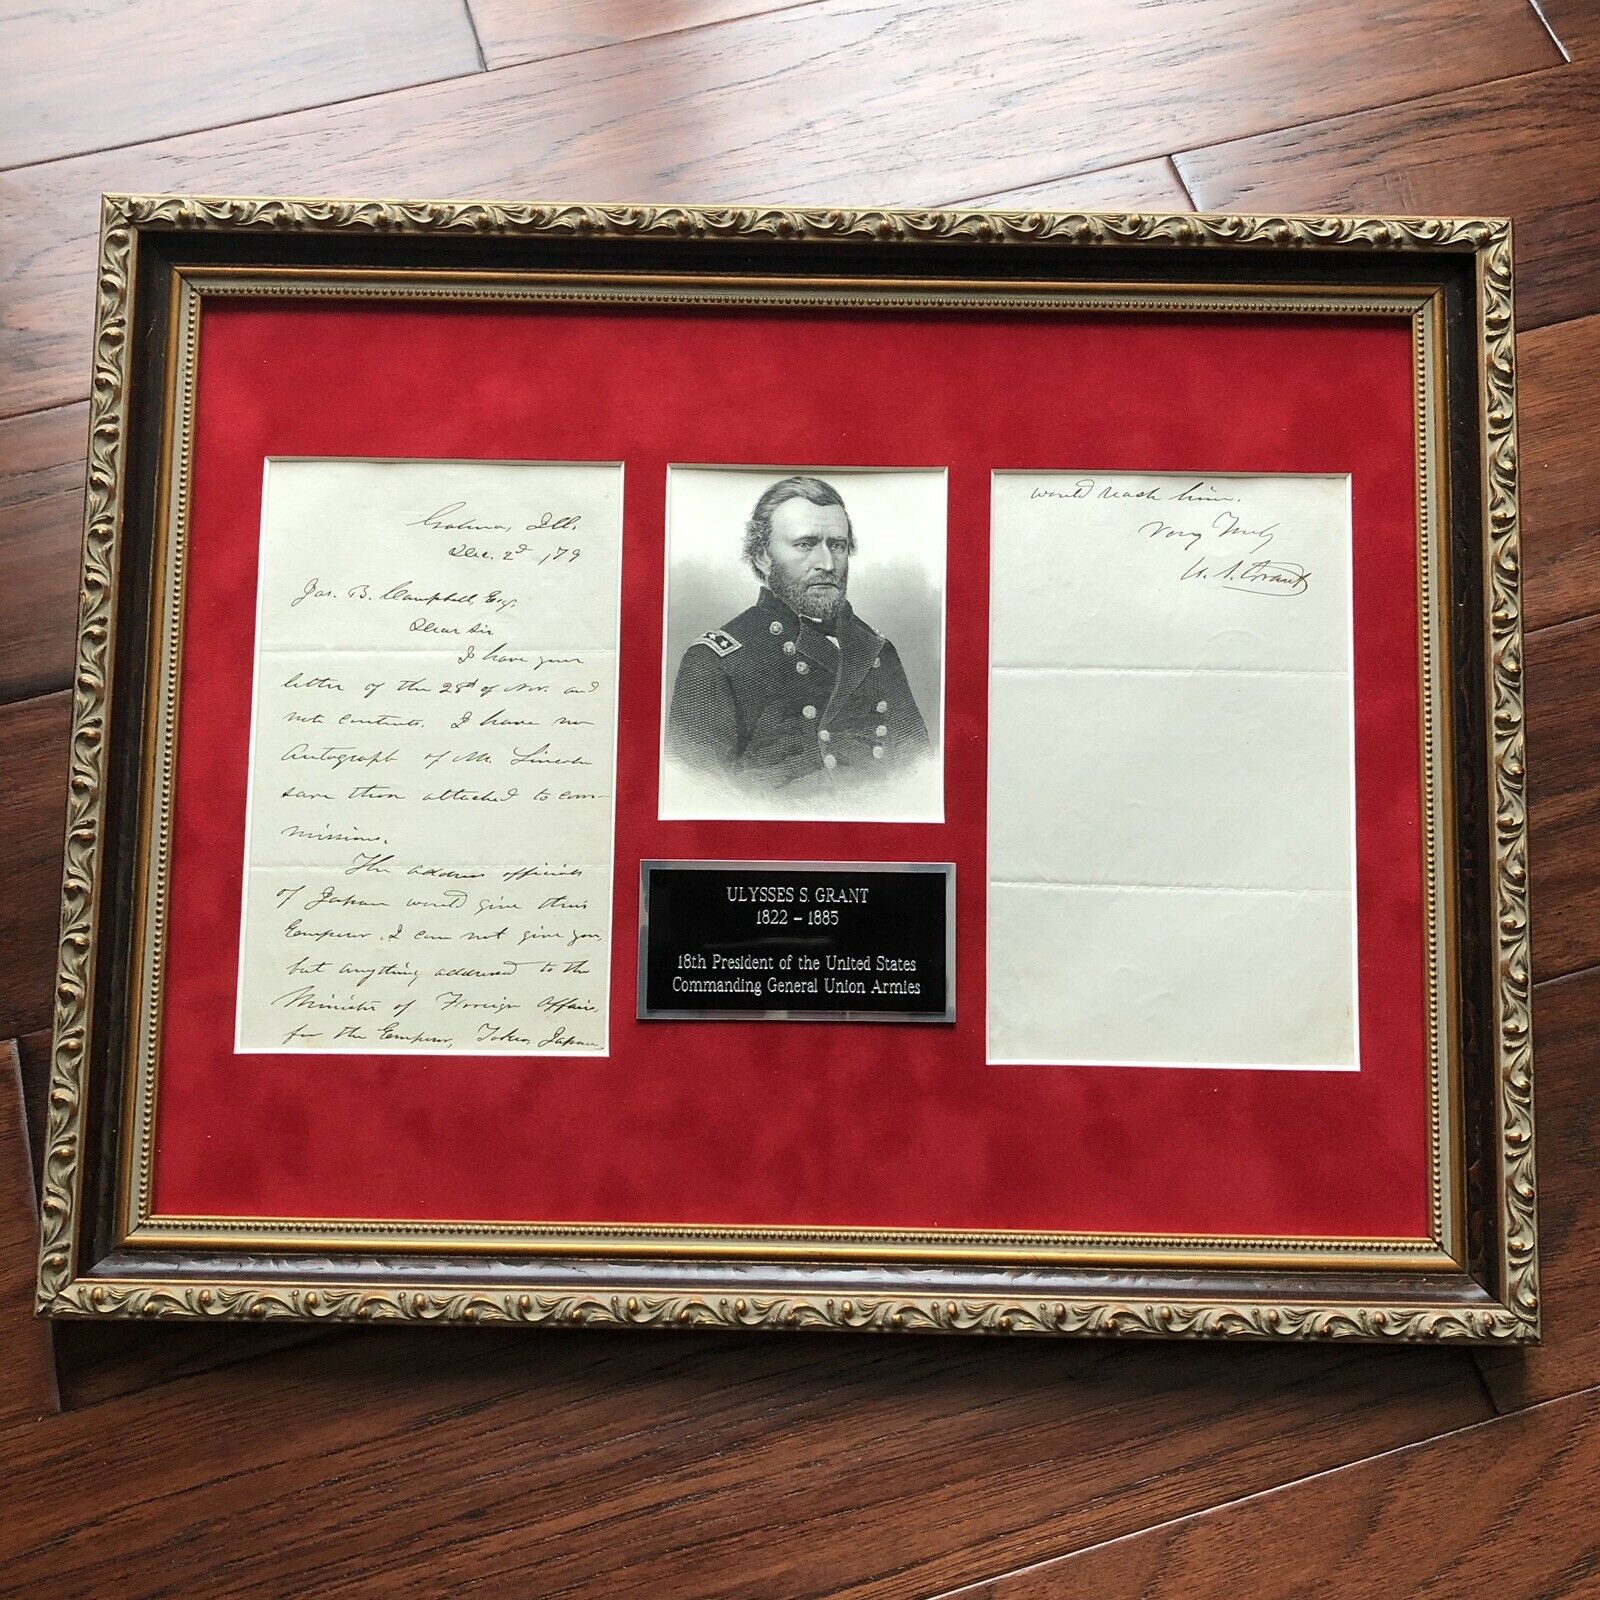 Galena, Ill.
Dec. 2d /79
Jas. B. Campbell, Esq.
Dear Sir
I have your
letter of the 28th of Nov. and
note contents. I have no
Autograph of Mr. Lincoln
save those attached to com-
missions.
The address officials
of Japan would give their
Emperor, I can not give you,
but anything addressed to the
Minister of Foreign Affairs,
for the Emperor, Tokio, Japan,
ULYSSES S. GRANT
1822 - 1885
18th President of the United States
Commanding General Union Armies
would reach him.
Very Truly
U. S. Grant